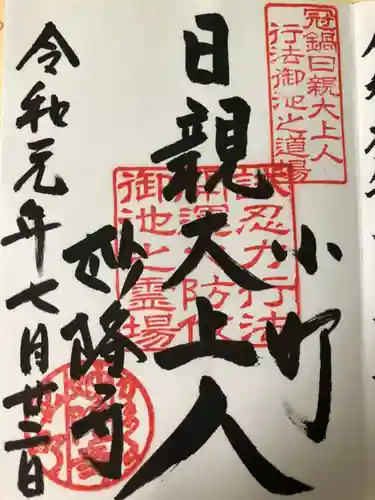 冠鍋日親大上人
行法御池之道場
小町
日親大上人
妙隆寺
令和元年七月廿二日
忍力行法
御池之霊場